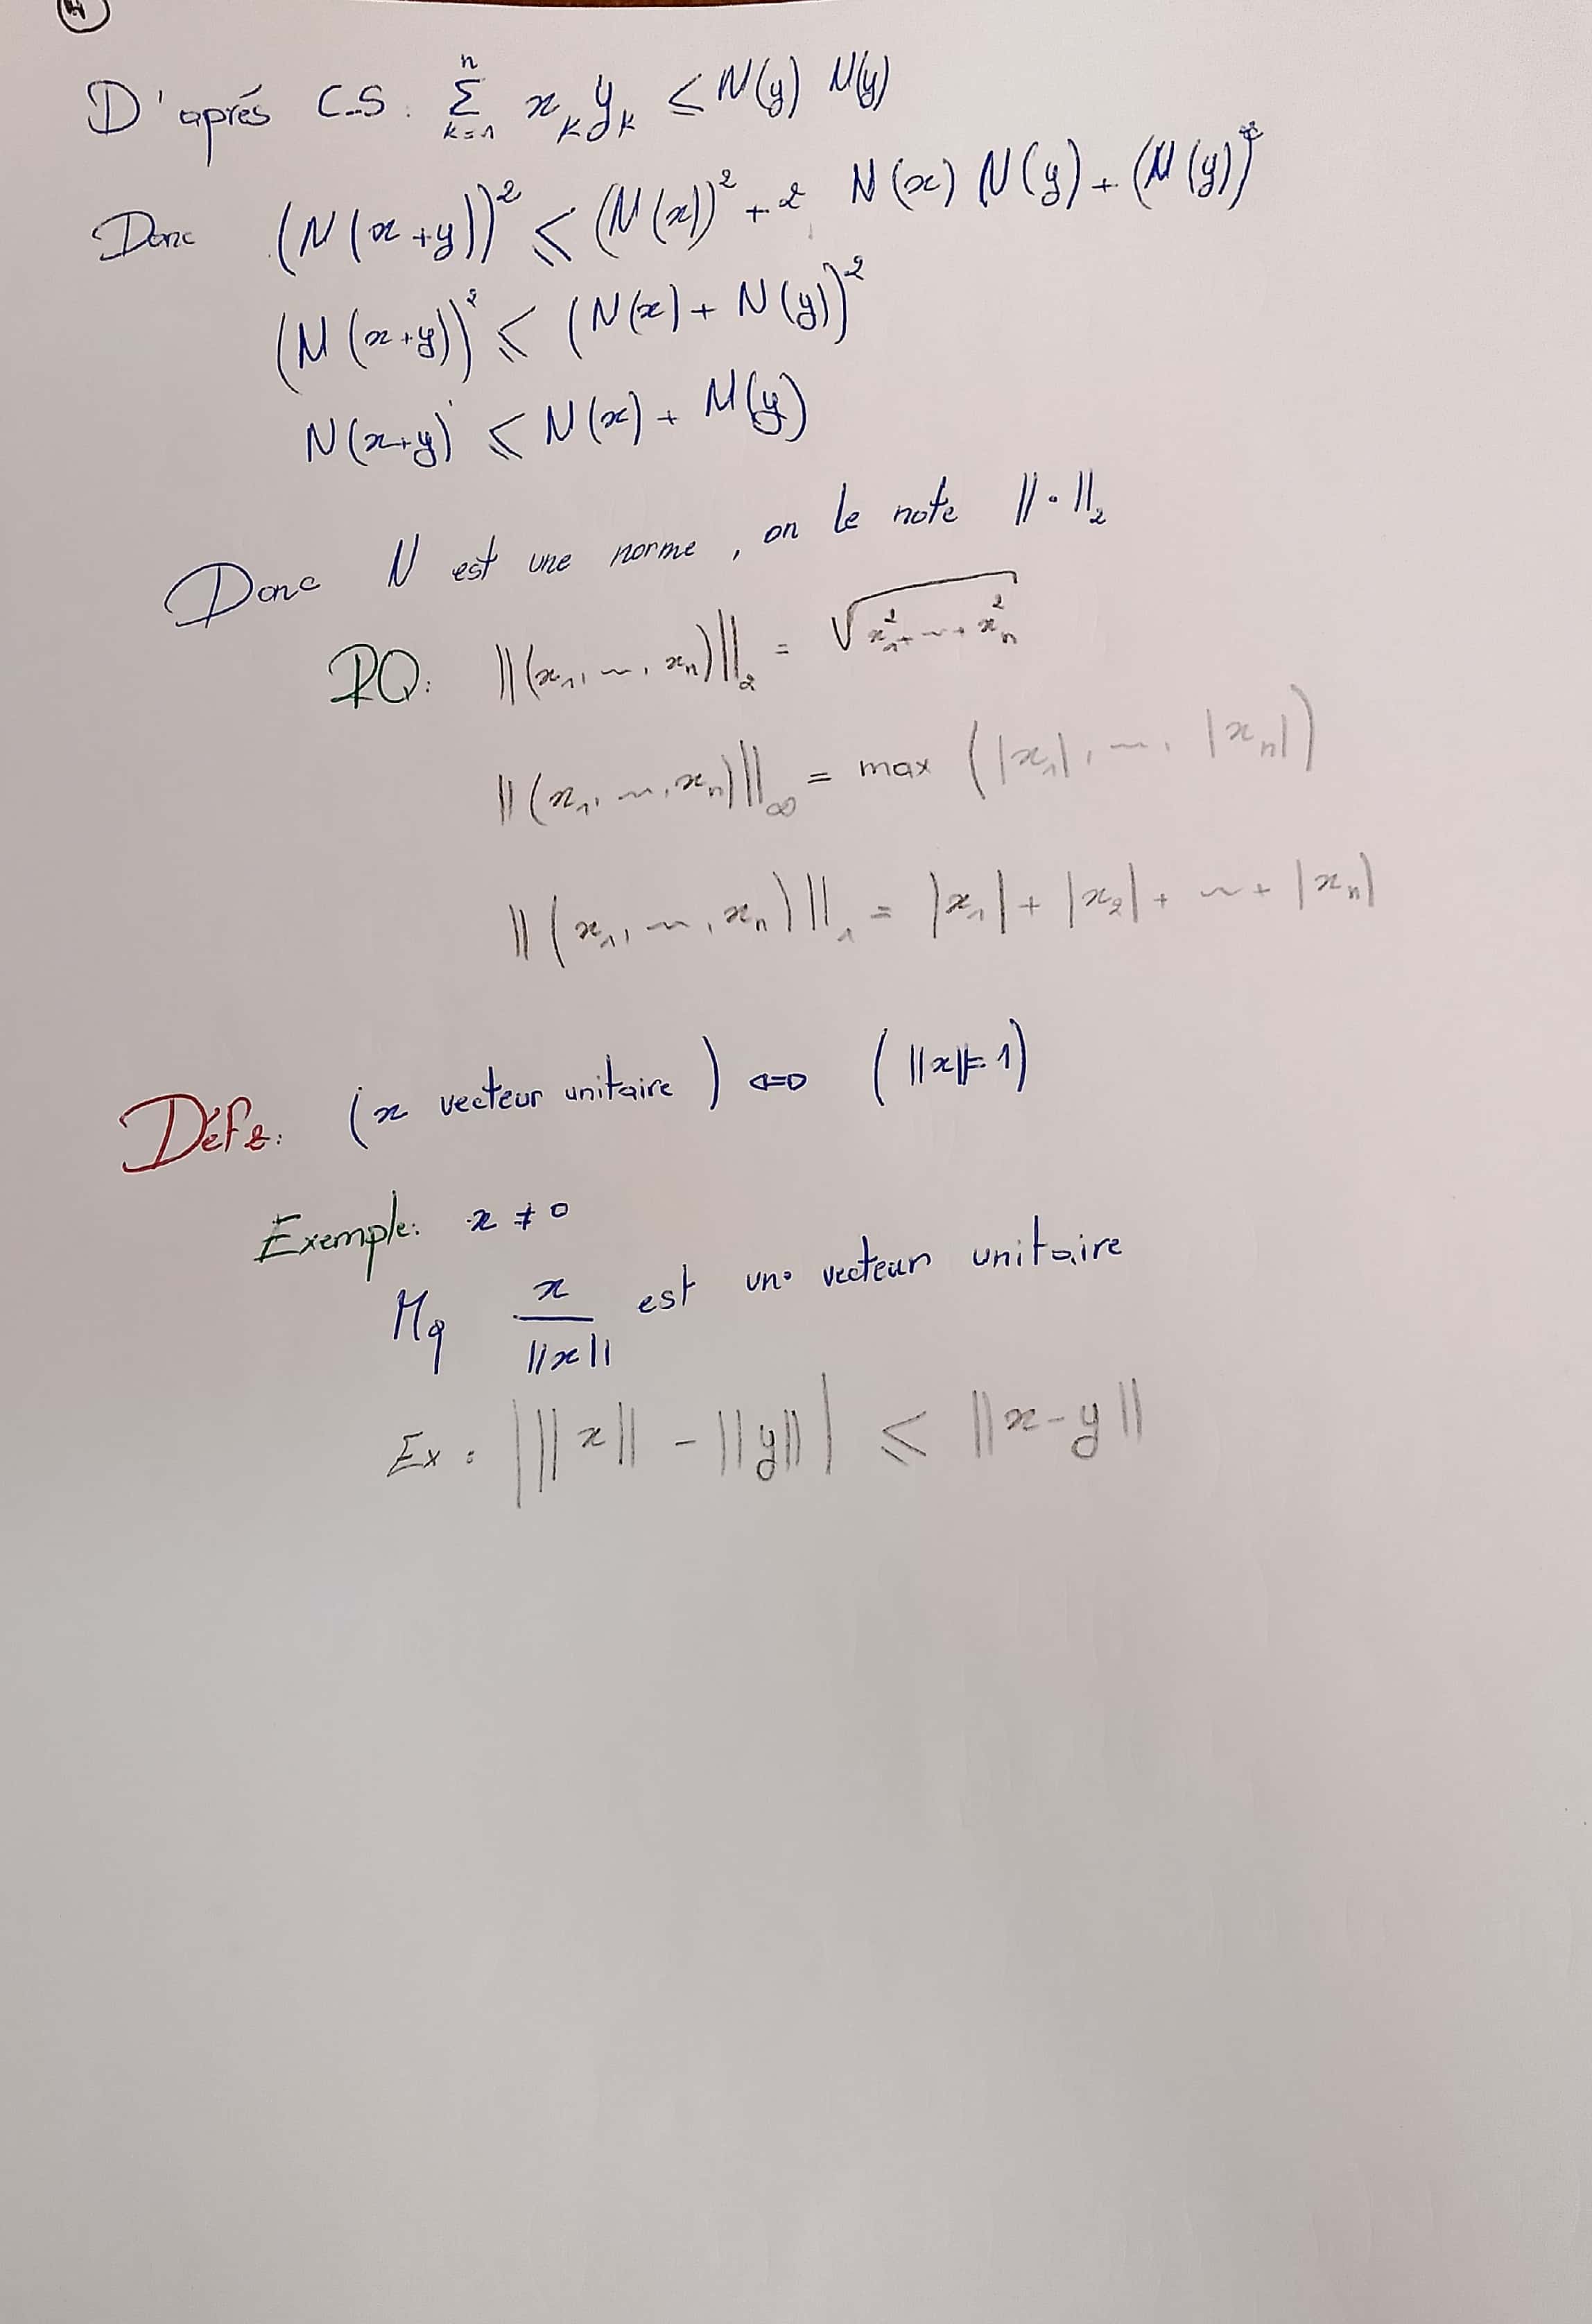 D'aprés C-S : Σ_{k=1}^{n} x_k y_k ≤ N(y) N(y)
Donc (N(x+y))² ≤ (N(x))² + 2 N(x) N(y) + (N(y))²
(N(x+y))² ≤ (N(x) + N(y))²
N(x+y) ≤ N(x) + N(y)
Donc N est une norme, on le note ||·||₂
RQ: ||(x₁, ..., xₙ)||₂ = √(x₁² + ... + xₙ²)
||(x₁, ..., xₙ)||_∞ = max (|x₁|, ..., |xₙ|)
||(x₁, ..., xₙ)||₁ = |x₁| + |x₂| + ... + |xₙ|
Déf 2: (x vecteur unitaire) ⇔ (||x|| = 1)
Exemple: x ≠ 0
Mq x / ||x|| est un vecteur unitaire
Ex : | ||x|| - ||y|| | ≤ ||x-y||